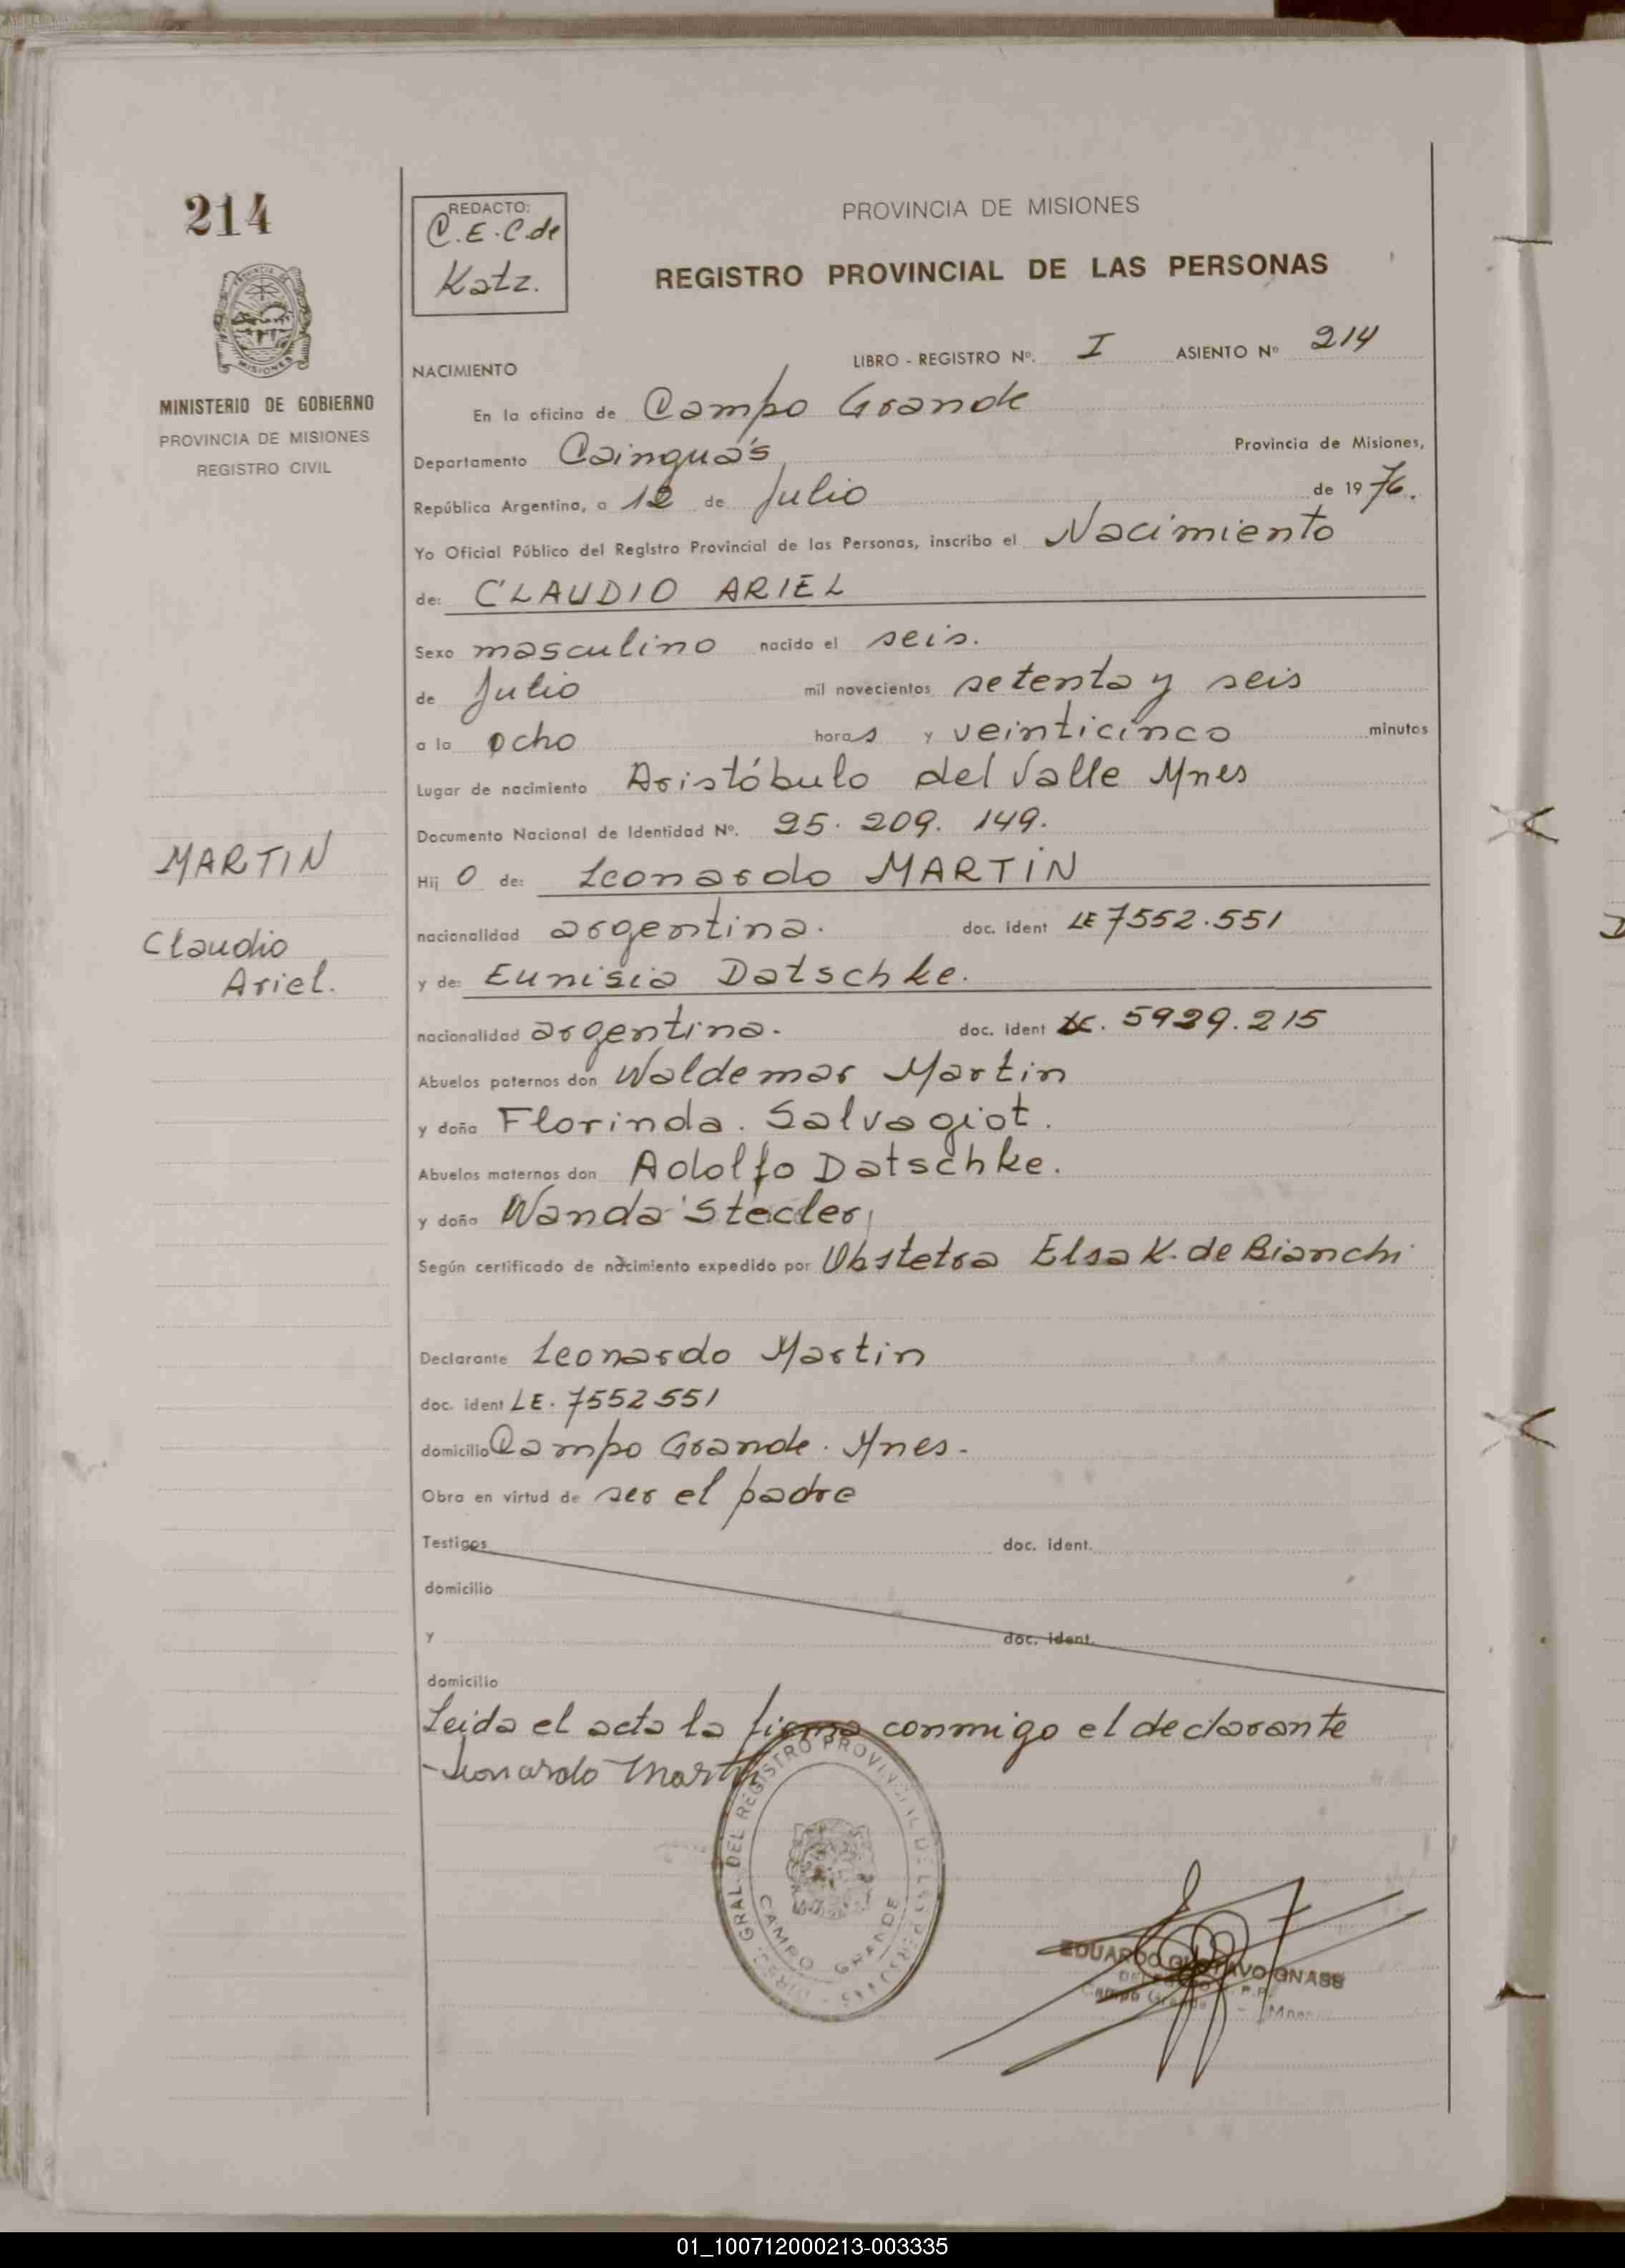 214
PROVINCIA DE MISIONES
MINISTERIO DE GOBIERNO
PROVINCIA DE MISIONES
REGISTRO CIVIL
MARTIN
Claudio
Ariel.
REDACTO:
C.E.C.de
Katz.
PROVINCIA DE MISIONES
REGISTRO PROVINCIAL DE LAS PERSONAS
NACIMIENTO LIBRO - REGISTRO Nº. I ASIENTO Nº 214
En la oficina de Campo Grande
Departamento Cainguás Provincia de Misiones,
República Argentina, a 12 de Julio de 1976.
Yo Oficial Público del Registro Provincial de las Personas, inscribo el Nacimiento
de: CLAUDIO ARIEL
Sexo masculino nacido el seis.
de Julio mil novecientos setenta y seis
a la ocho horas y veinticinco minutos
Lugar de nacimiento Aristóbulo del Valle Mnes
Documento Nacional de Identidad Nº. 25. 209. 149.
Hij o de: Leonardo MARTIN
nacionalidad argentina. doc. ident LE 7552.551
y de: Eunisia Datschke.
nacionalidad argentina. doc. ident 5929.215
Abuelos paternos don Waldemar Martin
y doña Florinda. Salvagiot.
Abuelos maternos don Adolfo Datschke.
y doña Wanda Stecler
Según certificado de nacimiento expedido por Obstetra Elsa K. de Bianchi
Declarante Leonardo Martin
doc. ident LE. 7552551
domicilio Campo Grande. Mnes.
Obra en virtud de ser el padre
Testigos doc. ident.
domicilio
y doc. ident.
domicilio
Leida el acta la firma conmigo el declarante
-Leonardo Martin
DIREC. GRAL. DEL REGISTRO PROVINCIAL DE LAS PERSONAS
CAMPO GRANDE
EDUARDO GUSTAVO GNASS
Campo Grande - Mnes
01_100712000213-003335